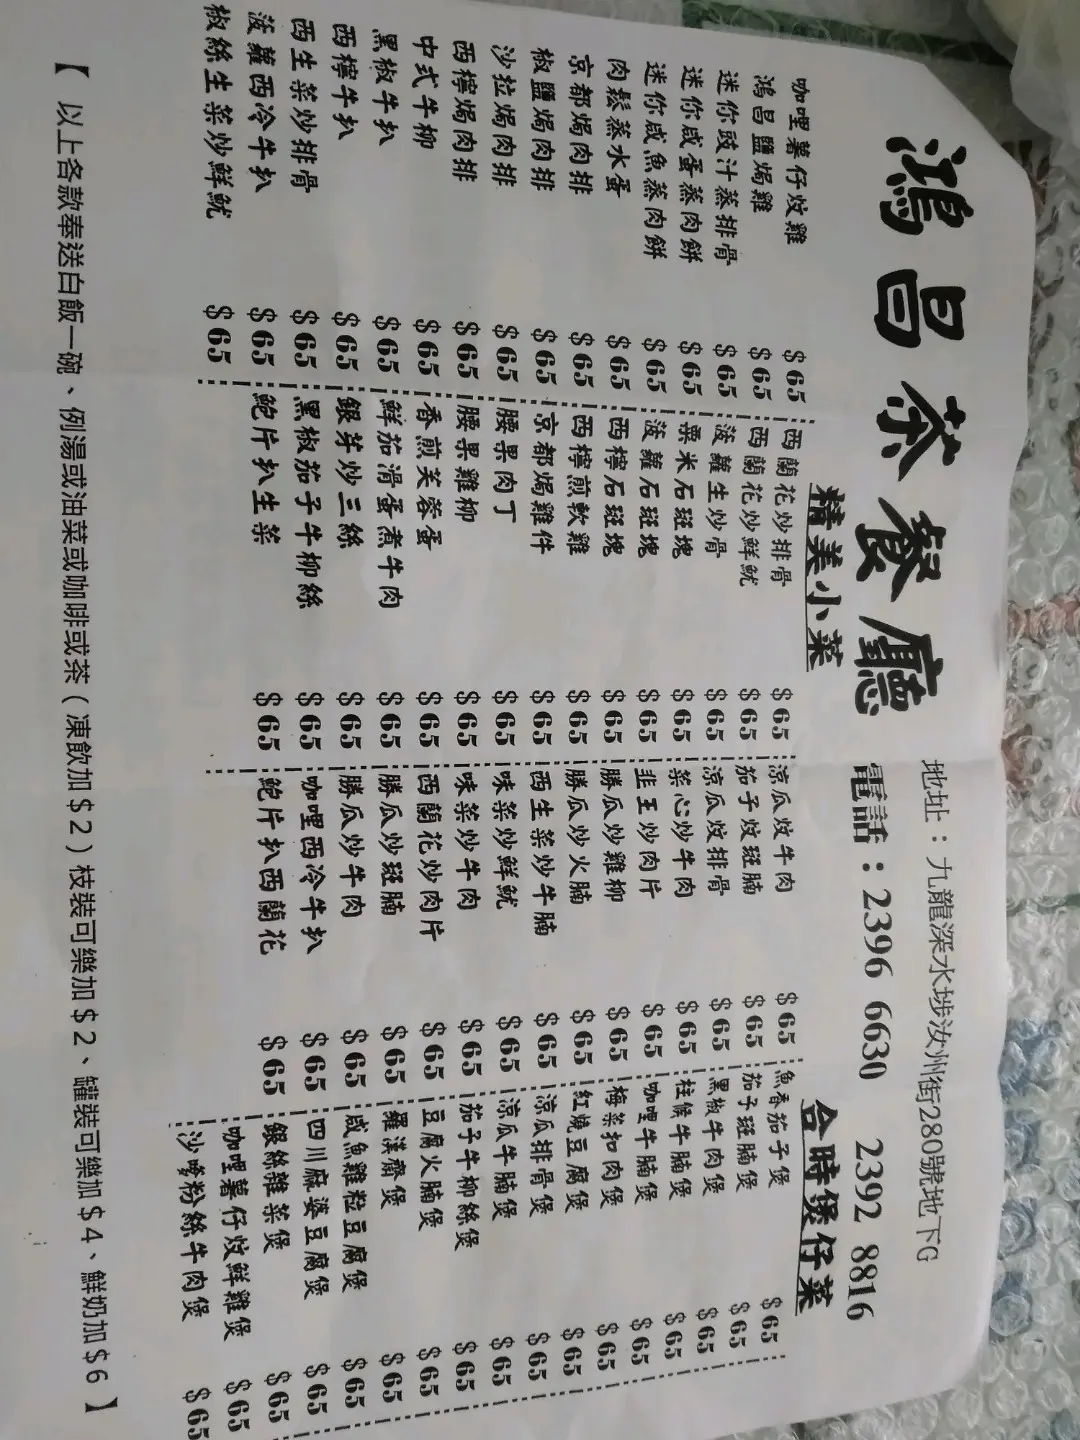 鴻昌茶餐廳
地址：九龍深水埗汝州街280號地下G
電話：2396 6630 2392 8816
精美小菜
咖哩薯仔炆雞 $65
鴻昌鹽焗雞 $65
迷你豉汁蒸排骨 $65
迷你咸蛋蒸肉餅 $65
迷你咸魚蒸肉餅 $65
肉鬆蒸水蛋 $65
京都焗肉排 $65
椒鹽焗肉排 $65
沙拉焗肉排 $65
西檸焗肉排 $65
中式牛柳 $65
黑椒牛扒 $65
西檸牛扒 $65
西生菜炒排骨 $65
菠蘿西冷牛扒 $65
椒絲生菜炒鮮魷 $65
西蘭花炒排骨 $65
西蘭花炒鮮魷 $65
菠蘿生炒骨 $65
粟米石斑塊 $65
菠蘿石斑塊 $65
西檸石斑塊 $65
西檸煎軟雞 $65
京都焗雞件 $65
腰果肉丁 $65
腰果雞柳 $65
香煎芙蓉蛋 $65
鮮茄滑蛋煮牛肉 $65
銀芽炒三絲 $65
黑椒茄子牛柳絲 $65
鮑片扒生菜 $65
涼瓜炆牛肉 $65
茄子炆斑腩 $65
涼瓜炆排骨 $65
菜心炒牛肉 $65
韭王炒肉片 $65
勝瓜炒雞柳 $65
勝瓜炒火腩 $65
西生菜炒牛腩 $65
味菜炒鮮魷 $65
味菜炒牛肉 $65
西蘭花炒肉片 $65
勝瓜炒斑腩 $65
勝瓜炒牛肉 $65
咖哩西冷牛扒 $65
鮑片扒西蘭花 $65
合時煲仔菜
魚香茄子煲 $65
茄子斑腩煲 $65
黑椒牛肉煲 $65
柱候牛腩煲 $65
咖哩牛腩煲 $65
梅菜扣肉煲 $65
紅燒豆腐煲 $65
涼瓜排骨煲 $65
涼瓜牛腩煲 $65
茄子牛柳絲煲 $65
豆腐火腩煲 $65
羅漢齋煲 $65
咸魚雞粒豆腐煲 $65
四川麻婆豆腐煲 $65
銀絲雜菜煲 $65
咖哩薯仔炆鮮雞煲 $65
沙爹粉絲牛肉煲 $65
【 以上各款奉送白飯一碗、例湯或油菜或咖啡或茶（凍飲加$2）枝裝可樂加$2、罐裝可樂加$4、鮮奶加$6】